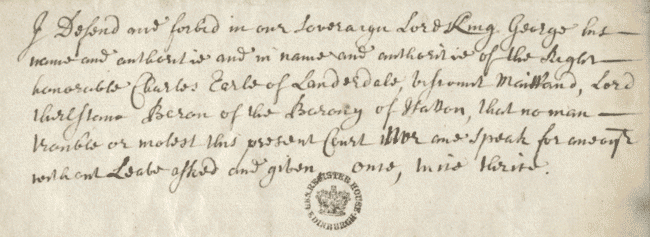 I Defend and forbid in our Soveraign Lord King George his
name and authoritie and in name and authoritie of the Right
honorable Charles Earle of Landerdale, viscount Maitland, Lord
thirlstane Baron of the Barony of Hatton, that no man
trouble or molest this present Court Nor ane Speak for aneoyr
without Leave asked and given once, twice thrice.
GEN. REGISTER HOUSE
EDINBURGH